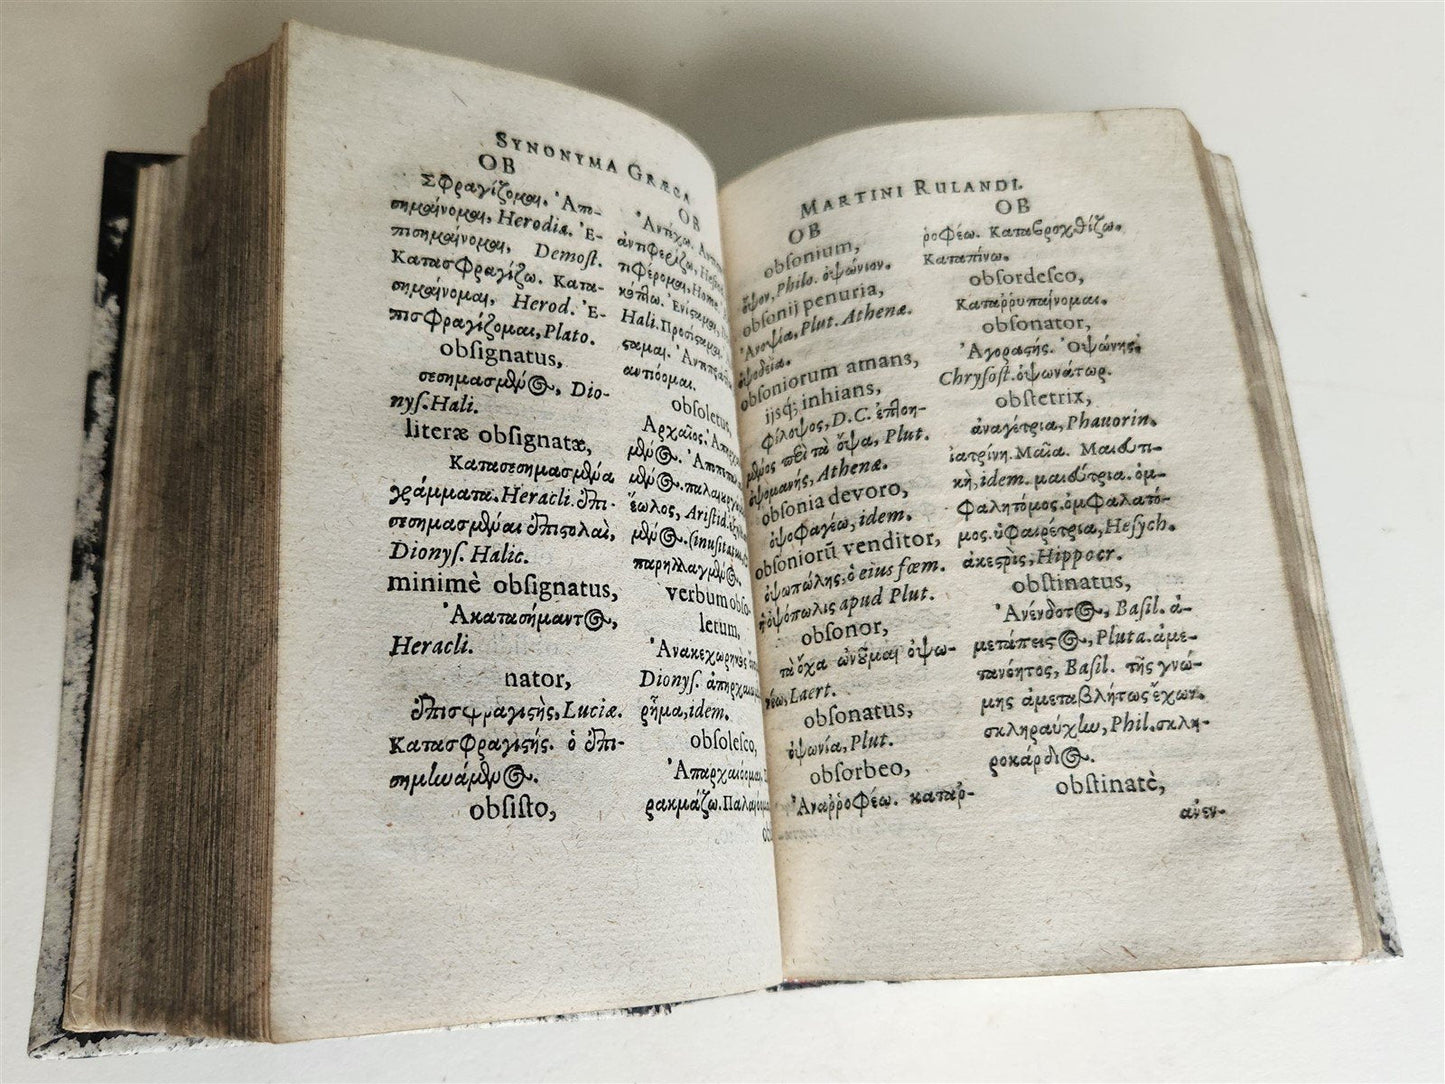 SYNONYMA GRÆCA
OB
Σφραγίζομαι. Ἀπο-
σημαίνομαι, Herodia. Ἐ-
πισημαίνομαι, Demost.
Κατασφραγίζω. Κατα-
σημαίνομαι, Herod. Ἐ-
πισφραγίζομαι, Plato.
obsignatus,
σεσημασμένος, Dio-
nys. Hali.
literæ obsignatæ,
Κατασεσημασμένα
γράμματα. Heracli. ἐπι-
σεσημασμέναι ἐπιστολαὶ,
Dionys. Halic.
minimè obsignatus,
Ἀκατασήμαντος,
Heracli.
nator,
ἐπισφραγιστὴς, Luciæ.
Κατασφραγιστής. ὁ ἐπι-
σημηνάμενος.
obsisto,
OB
Ἀντέχω.
ἀντιφερίζω,
τιφέρομαι, Home.
Ἐνίσταμαι,
Hali. Προσίσταμαι.
σταμαι.
αντιόομαι.
obsoletus,
Αρχαῖος.
μένος.
μένος.
ἕωλος, Aristid.
μένος.
παρηλλαγμένος.
verbum obso-
letum,
Ἀνακεχωρηκὸς
Dionys.
ῥῆμα, idem.
obsolesco,
Ἀπαρχαιόομαι.
ρακμάζω.
MARTINI RULANDI.
OB
obsonium,
ὄψον, Philo. ὀψώνιον.
obsonij penuria,
Ἀνοψία, Plut. Athenæ.
obsoniorum amans,
ijsq; inhians,
Φίλοψος, D.C. ἐπλοη-
μένος περὶ τὰ ὄψα, Plut.
ὀψομανής, Athenæ.
obsonia devoro,
ὀψοφαγέω, idem.
obsoniorũ venditor,
ὀψωπώλης, ὁ eius fœm.
ἡ ὀψόπωλις apud Plut.
obsonor,
τὰ ὄχα ὠνοῦμαι ὀψω-
νέω, Laert.
obsonatus,
ὀψωνία, Plut.
obsorbeo,
Ἀναῤῥοφέω. καταῤ-
OB
ῥοφέω. Καταβροχθίζω.
Καταπίνω.
obsordesco,
Καταῤῥυπαίνομαι.
obsonator,
Ἀγοραστής. Ὀψώνης.
Chrysost. ὀψωνάτωρ.
obstetrix,
ἀναγέτρια, Phauorin.
ἰατρίνη. Μαῖα. Μαιευτι-
κὴ, idem. μαιεύτρια. ὀμ-
φαλητόμος. ὀμφαλατό-
μος. ὑφαιρέτρια, Hesych.
ἀκεσρὶς, Hippocr.
obstinatus,
Ἀνένδοτος, Basil. ἀ-
μετάπεισος, Pluta. ἀμε-
τανόητος, Basil. τῆς γνώ-
μης ἀμεταβλήτως ἔχων.
σκληραύχην, Phil. σκλη-
ροκάρδιος.
obstinatè,
ἀνεν-